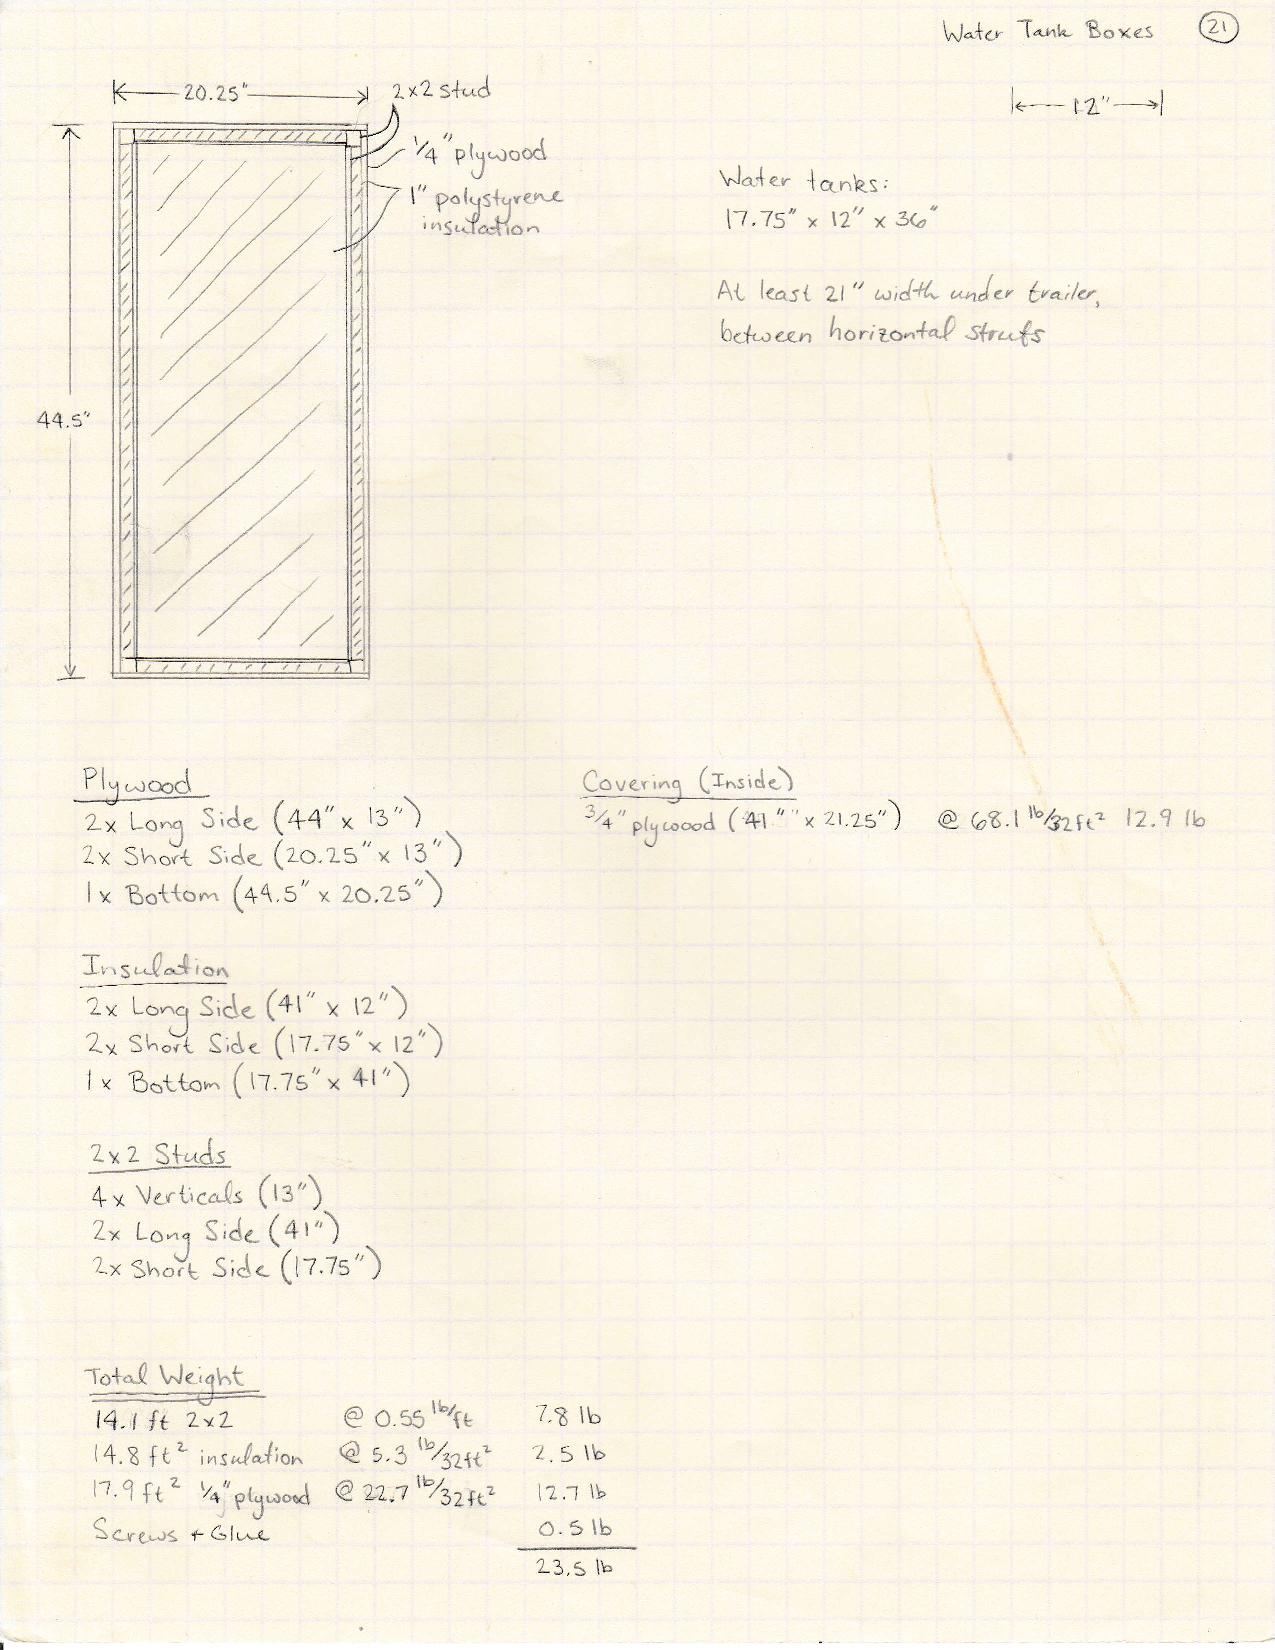 Water Tank Boxes 21
20.25"
2x2 stud
12"
1/4" plywood
1" polystyrene
insulation
Water tanks:
17.75" x 12" x 36"
At least 21" width under trailer,
between horizontal struts
44.5"
Plywood
2x Long Side (44" x 13")
2x Short Side (20.25" x 13")
1x Bottom (44.5" x 20.25")
Covering (Inside)
3/4" plywood (41" x 21.25") @ 68.1 lb/32ft² 12.9 lb
Insulation
2x Long Side (41" x 12")
2x Short Side (17.75" x 12")
1x Bottom (17.75" x 41")
2x2 Studs
4x Verticals (13")
2x Long Side (41")
2x Short Side (17.75")
Total Weight
14.1 ft 2x2 @ 0.55 lb/ft 7.8 lb
14.8 ft² insulation @ 5.3 lb/32ft² 2.5 lb
17.9 ft² 1/4" plywood @ 22.7 lb/32ft² 12.7 lb
Screws + Glue 0.5 lb
23.5 lb